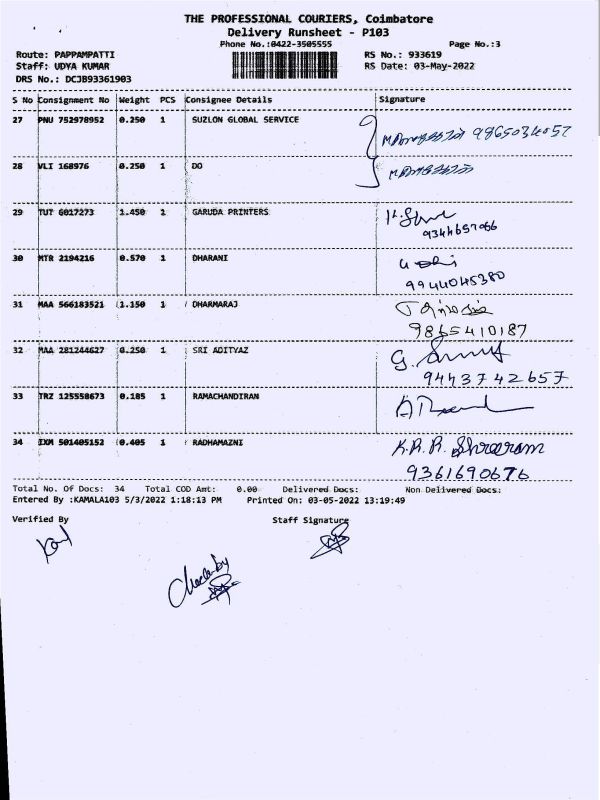 THE PROFESSIONAL COURIERS, Coimbatore
Delivery Runsheet - P103
Phone No.:0422-3505555
Page No.:3
Route: PAPPAMPATTI
RS No.: 933619
Staff: UDYA KUMAR
RS Date: 03-May-2022
DRS No.: DCJB93361903
S No Consignment No Weight PCS Consignee Details Signature
27 PNU 752978952 0.250 1 SUZLON GLOBAL SERVICE 9865034057
28 VLI 168976 0.250 1 DO
29 TUT 6017273 1.450 1 GARUDA PRINTERS
9344657066
30 MTR 2194216 0.570 1 DHARANI
9944045380
31 MAA 566183521 1.150 1 DHARMARAJ
9865410187
32 MAA 281244627 0.250 1 SRI ADITYAZ
9443742657
33 TRZ 125558673 0.185 1 RAMACHANDIRAN
34 IXM 501405152 0.405 1 RADHAMAZNI K.R.R. Shreeram
9361690676
Total No. Of Docs: 34 Total COD Amt: 0.00 Delivered Docs: Non Delivered Docs:
Entered By :KAMALA103 5/3/2022 1:18:13 PM Printed On: 03-05-2022 13:19:49
Verified By Staff Signature